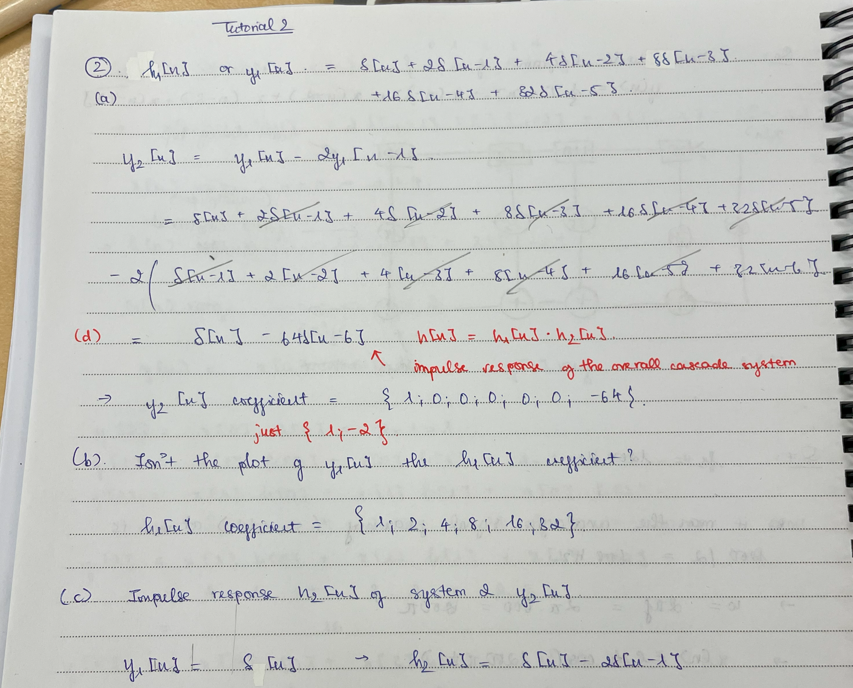 Tutorial 2
② h₁[n] or y₁[n] = δ[n] + 2δ[n-1] + 4δ[n-2] + 8δ[n-3]
(a) +16δ[n-4] + 32δ[n-5]
y₂[n] = y₁[n] - 2y₁[n-1]
= δ[n] + 2δ[n-1] + 4δ[n-2] + 8δ[n-3] + 16δ[n-4] + 32δ[n-5]
- 2( δ[n-1] + 2[n-2] + 4[n-3] + 8[n-4] + 16[n-5] + 32[n-6]
(d) = δ[n] - 64δ[n-6] h[n] = h₁[n] · h₂[n]
↖ impulse response of the overall cascade system
→ y₂[n] coefficient = { 1; 0; 0; 0; 0; 0; -64 }.
just { 1; -2 }
(b). Isn't the plot of y₁[n] the h₁[n] coefficient?
h₁[n] coefficient = { 1; 2; 4; 8; 16; 32 }
(c) Impulse response h₂[n] of system 2 y₂[n]
y₁[n] = δ[n] → h₂[n] = δ[n] - 2δ[n-1]